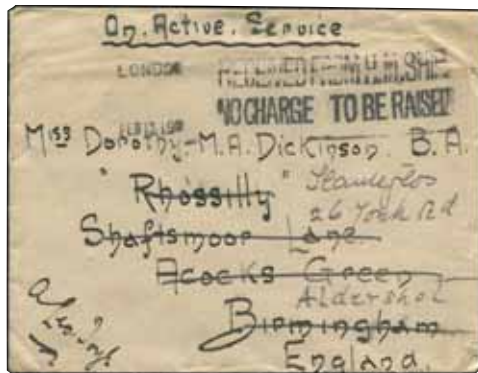 On. Active. Service
LONDON RECEIVED FROM H.M. SHIP
NO CHARGE TO BE RAISED
Miss Dorothy. M. A. Dickinson. B. A.
"Rhossilly"
26 York Rd
Shaftsmoor Lane.
Acocks Green
Aldershot
Birmingham
England.